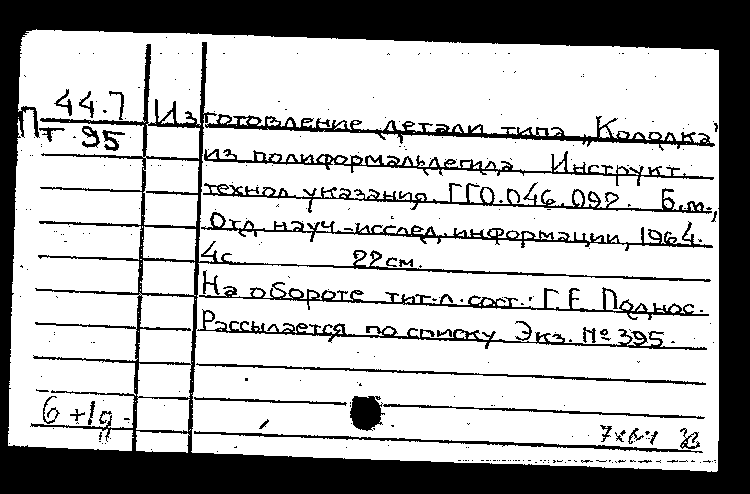 П 44.7
т 95
Изготовление детали типа „Колодка"
из полиформальдегида. Инструкт.
технол. указания. ГГО.046.092. Б.м.,
Отд. науч.-исслед. информации, 1964.
4с. 22см.
На обороте тит. л. сост.: Г.Е. Поднос.
Рассылается по списку. Экз. № 395.
6 +1д